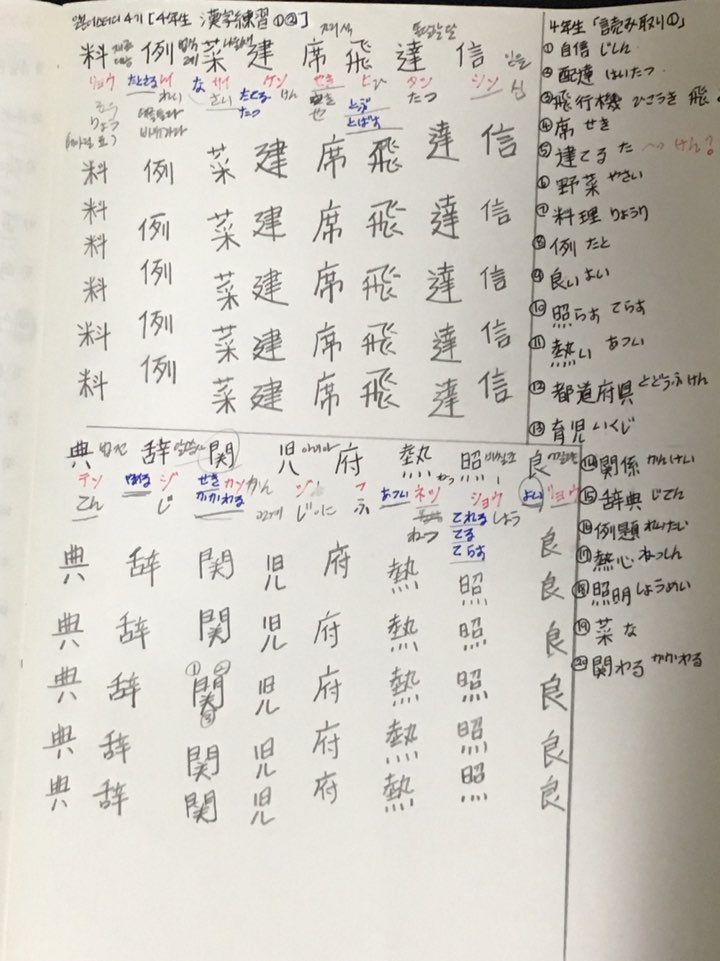 4기 [4年生 漢字練習①②]
料 例 菜 建 席 飛 達 信
たとえる な サイ ケン せき ひ タツ シン
れい さい たてる けん せき とぶ たつ
りょう たつ とばす
料 例 菜 建 席 飛 達 信
料 例 菜 建 席 飛 達 信
料 例 菜 建 席 飛 達 信
料 例 菜 建 席 飛 達 信
料 例 菜 建 席 飛 達 信
料
典 辞 関 児 府 熱 照 良
テン ジ せき カン かん ジ フ あつい ネツ ショウ よい
てん じ かかわる じ に ふ ねつ てれる しょう
てる
てらす
典 辞 関 児 府 熱 照 良
典 辞 関 児 府 熱 照 良
典 辞 ① ② 関 児 府 熱 照 良
③
典 辞 関 児 府 熱 照 良
典 辞 関 児 府 熱 照 良
4年生「読み取り①」
① 自信 じしん
② 配達 はいたつ
③ 飛行機 ひこうき 飛
④ 席 せき
⑤ 建てる た けん?
⑥ 野菜 やさい
⑦ 料理 りょうり
⑧ 例 たと
⑨ 良い よい
⑩ 照らす てらす
⑪ 熱い あつい
⑫ 都道府県 とどうふけん
⑬ 育児 いくじ
⑭ 関係 かんけい
⑮ 辞典 じてん
⑯ 例題 れいだい
⑰ 熱心 ねっしん
⑱ 照明 しょうめい
⑲ 菜 な
⑳ 関わる かかわる